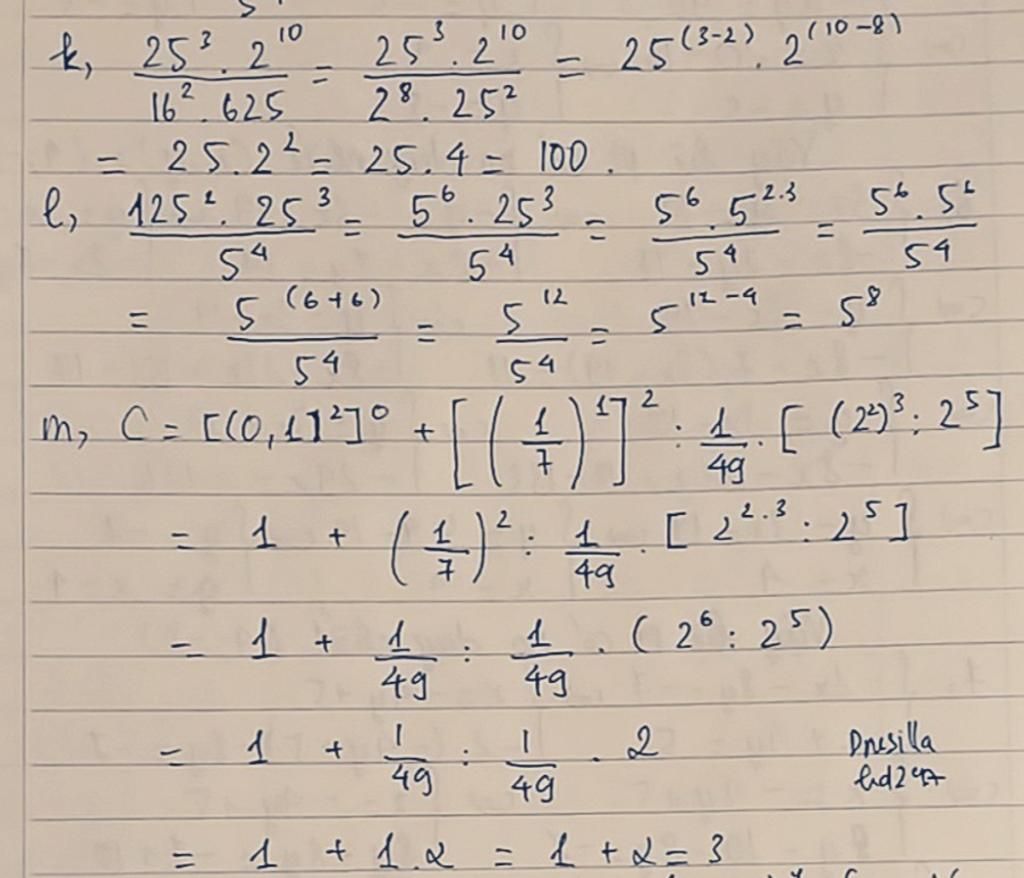 k, 25³ . 2¹⁰ / 16² . 625 = 25³ . 2¹⁰ / 2⁸ . 25² = 25⁽³⁻²⁾ . 2⁽¹⁰⁻⁸⁾
= 25 . 2² = 25 . 4 = 100 .
l, 125² . 25³ / 5⁴ = 5⁶ . 25³ / 5⁴ = 5⁶ . 5²·³ / 5⁴ = 5⁶ . 5⁶ / 5⁴
= 5⁽⁶⁺⁶⁾ / 5⁴ = 5¹² / 5⁴ = 5¹²⁻⁴ = 5⁸
m, C = [(0,1)²]⁰ + [(1/7)¹]² : 1/49 . [(2²)³ : 2⁵]
= 1 + (1/7)² : 1/49 . [2²·³ : 2⁵]
= 1 + 1/49 : 1/49 . (2⁶ : 2⁵)
= 1 + 1/49 : 1/49 . 2
= 1 + 1.2 = 1 + 2 = 3